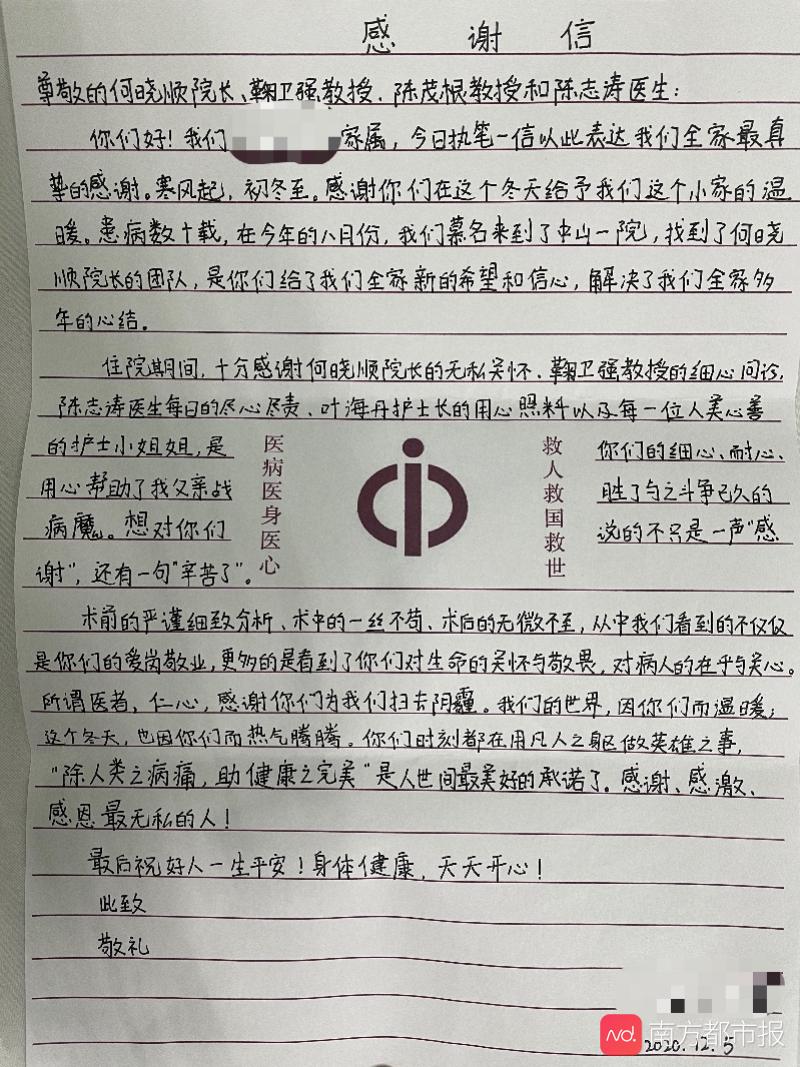 感谢信
尊敬的何晓顺院长、鞠卫强教授、陈茂根教授和陈志涛医生:
你们好!我们 家属,今日执笔一信以此表达我们全家最真
挚的感谢。寒风起,初冬至。感谢你们在这个冬天给予我们这个小家的温
暖。患病数十载,在今年的八月份,我们慕名来到了中山一院,找到了何晓
顺院长的团队,是你们给了我们全家新的希望和信心,解决了我们全家多
年的心结。
住院期间,十分感谢何晓顺院长的无私关怀、鞠卫强教授的细心问诊,
陈志涛医生每日的尽心尽责、叶海丹护士长的用心照料以及每一位人美心善
的护士小姐姐,是 你们的细心、耐心、
用心帮助了我父亲战 胜了与之斗争已久的
病魔。想对你们 说的不只是一声“感
谢”,还有一句“辛苦了”。
医病医身医心
救人救国救世
术前的严谨细致分析、术中的一丝不苟、术后的无微不至,从中我们看到的不仅仅
是你们的爱岗敬业,更多的是看到了你们对生命的关怀与敬畏,对病人的在乎与关心。
所谓医者,仁心,感谢你们为我们扫去阴霾。我们的世界,因你们而温暖;
这个冬天,也因你们而热气腾腾。你们时刻都在用凡人之身躯做英雄之事,
“除人类之病痛,助健康之完美”是人世间最美好的承诺了。感谢、感激、
感恩最无私的人!
最后祝好人一生平安!身体健康,天天开心!
此致
敬礼
2020.12.5
nd.南方都市报